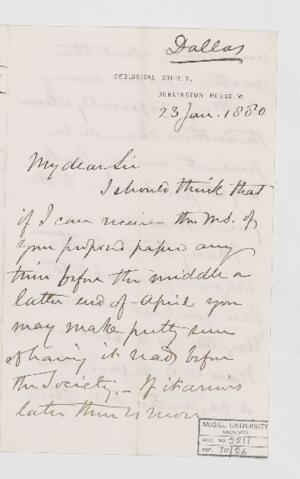 Dallas
GEOLOGICAL SOCIETY,
BURLINGTON HOUSE, W.
23 Jan. 1880
My dear Sir
I should think that
if I can receive the MS. of
your proposed paper any
time before the middle or
latter end of April you
may make pretty sure
of having it read before
the Society. – If it arrives
later there is more
McGILL UNIVERSITY
ARCHIVES
ACC. NO. 2211
REF.